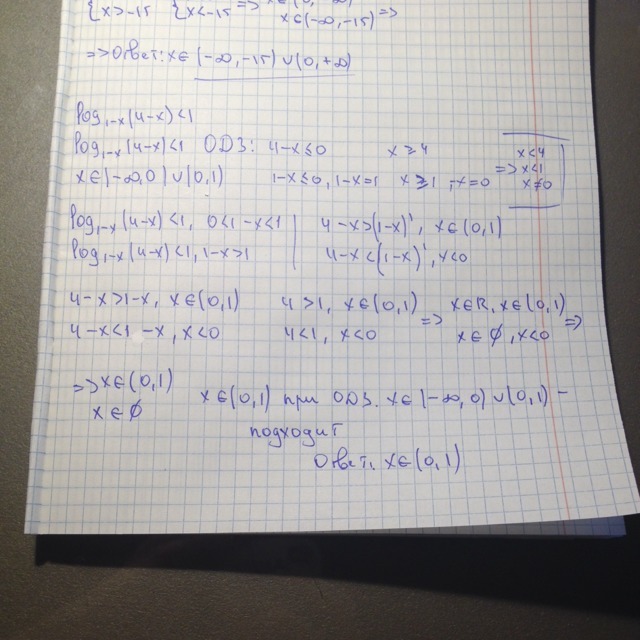 {x>-15 {x<-15 =>
x∈(-∞,-15) =>
=> Ответ: x∈(-∞,-15)∪(0,+∞)
log₁₋ₓ(4-x)<1
log₁₋ₓ(4-x)<1 ОДЗ: 4-x≤0 x≥4 x<4
x∈(-∞,0)∪(0,1) 1-x≤0, 1-x=1 x≥1, -x=0 => x<1
x≠0
log₁₋ₓ(4-x)<1, 0<1-x<1 | 4-x>(1-x)¹, x∈(0,1)
log₁₋ₓ(4-x)<1, 1-x>1 | 4-x<(1-x)¹, x<0
4-x>1-x, x∈(0,1) 4>1, x∈(0,1) => x∈R, x∈(0,1)
4-x<1-x, x<0 4<1, x<0 x∈∅, x<0 =>
=> x∈(0,1) x∈(0,1) при ОДЗ. x∈(-∞,0)∪(0,1) -
x∈∅
подходит
Ответ: x∈(0,1)